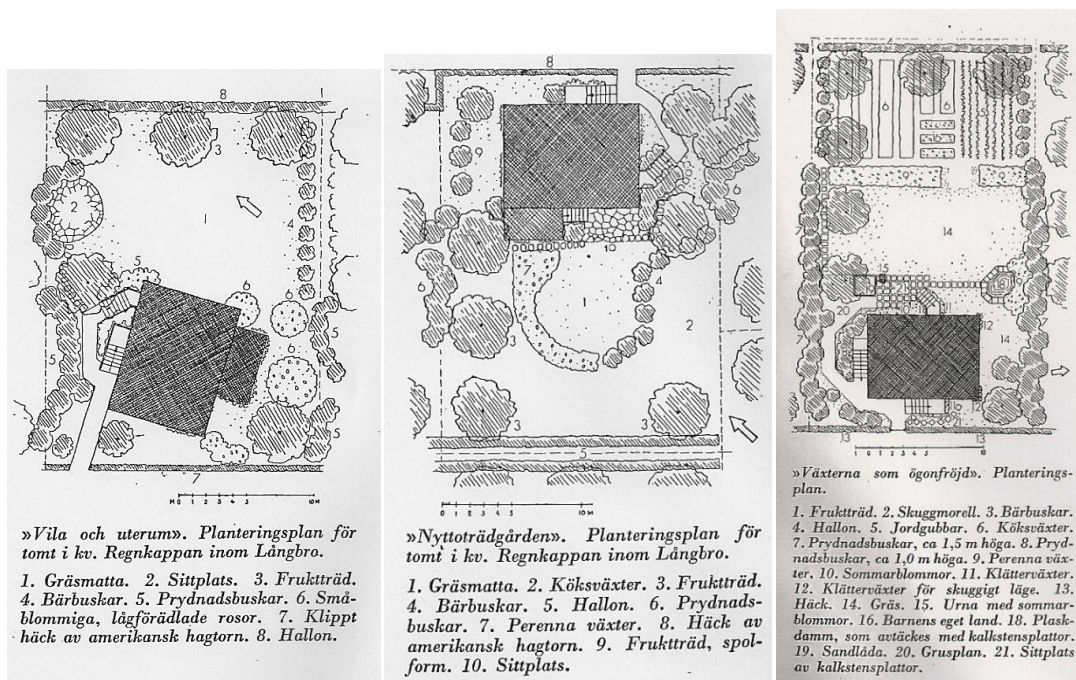 8
3
2
1
4
5
6
6
5
6
5
5
7
M 0 1 2 3 4 5 10 M
»Vila och uterum». Planteringsplan för
tomt i kv. Regnkappan inom Långbro.
1. Gräsmatta. 2. Sittplats. 3. Fruktträd.
4. Bärbuskar. 5. Prydnadsbuskar. 6. Små-
blommiga, lågförädlade rosor. 7. Klippt
häck av amerikansk hagtorn. 8. Hallon.
8
9
6
10
7
4
6
1
2
3
3
3
5
0 1 2 3 4 5 10 M
»Nyttoträdgården». Planteringsplan för
tomt i kv. Regnkappan inom Långbro.
1. Gräsmatta. 2. Köksväxter. 3. Fruktträd.
4. Bärbuskar. 5. Hallon. 6. Prydnads-
buskar. 7. Perenna växter. 8. Häck av
amerikansk hagtorn. 9. Fruktträd, spol-
form. 10. Sittplats.
4
3
6
6
5
3
9
9
14
15
18
20
7
12
14
12
16
21
13
13
»Växterna som ögonfröjd». Planterings-
plan.
1. Fruktträd. 2. Skuggmorell. 3. Bärbuskar.
4. Hallon. 5. Jordgubbar. 6. Köksväxter.
7. Prydnadsbuskar, ca 1,5 m höga. 8. Pryd-
nadsbuskar, ca 1,0 m höga. 9. Perenna väx-
ter. 10. Sommarblommor. 11. Klätterväxter.
12. Klätterväxter för skuggigt läge. 13.
Häck. 14. Gräs. 15. Urna med sommar-
blommor. 16. Barnens eget land. 18. Plask-
damm, som avtäckes med kalkstensplattor.
19. Sandlåda. 20. Grusplan. 21. Sittplats
av kalkstensplattor.